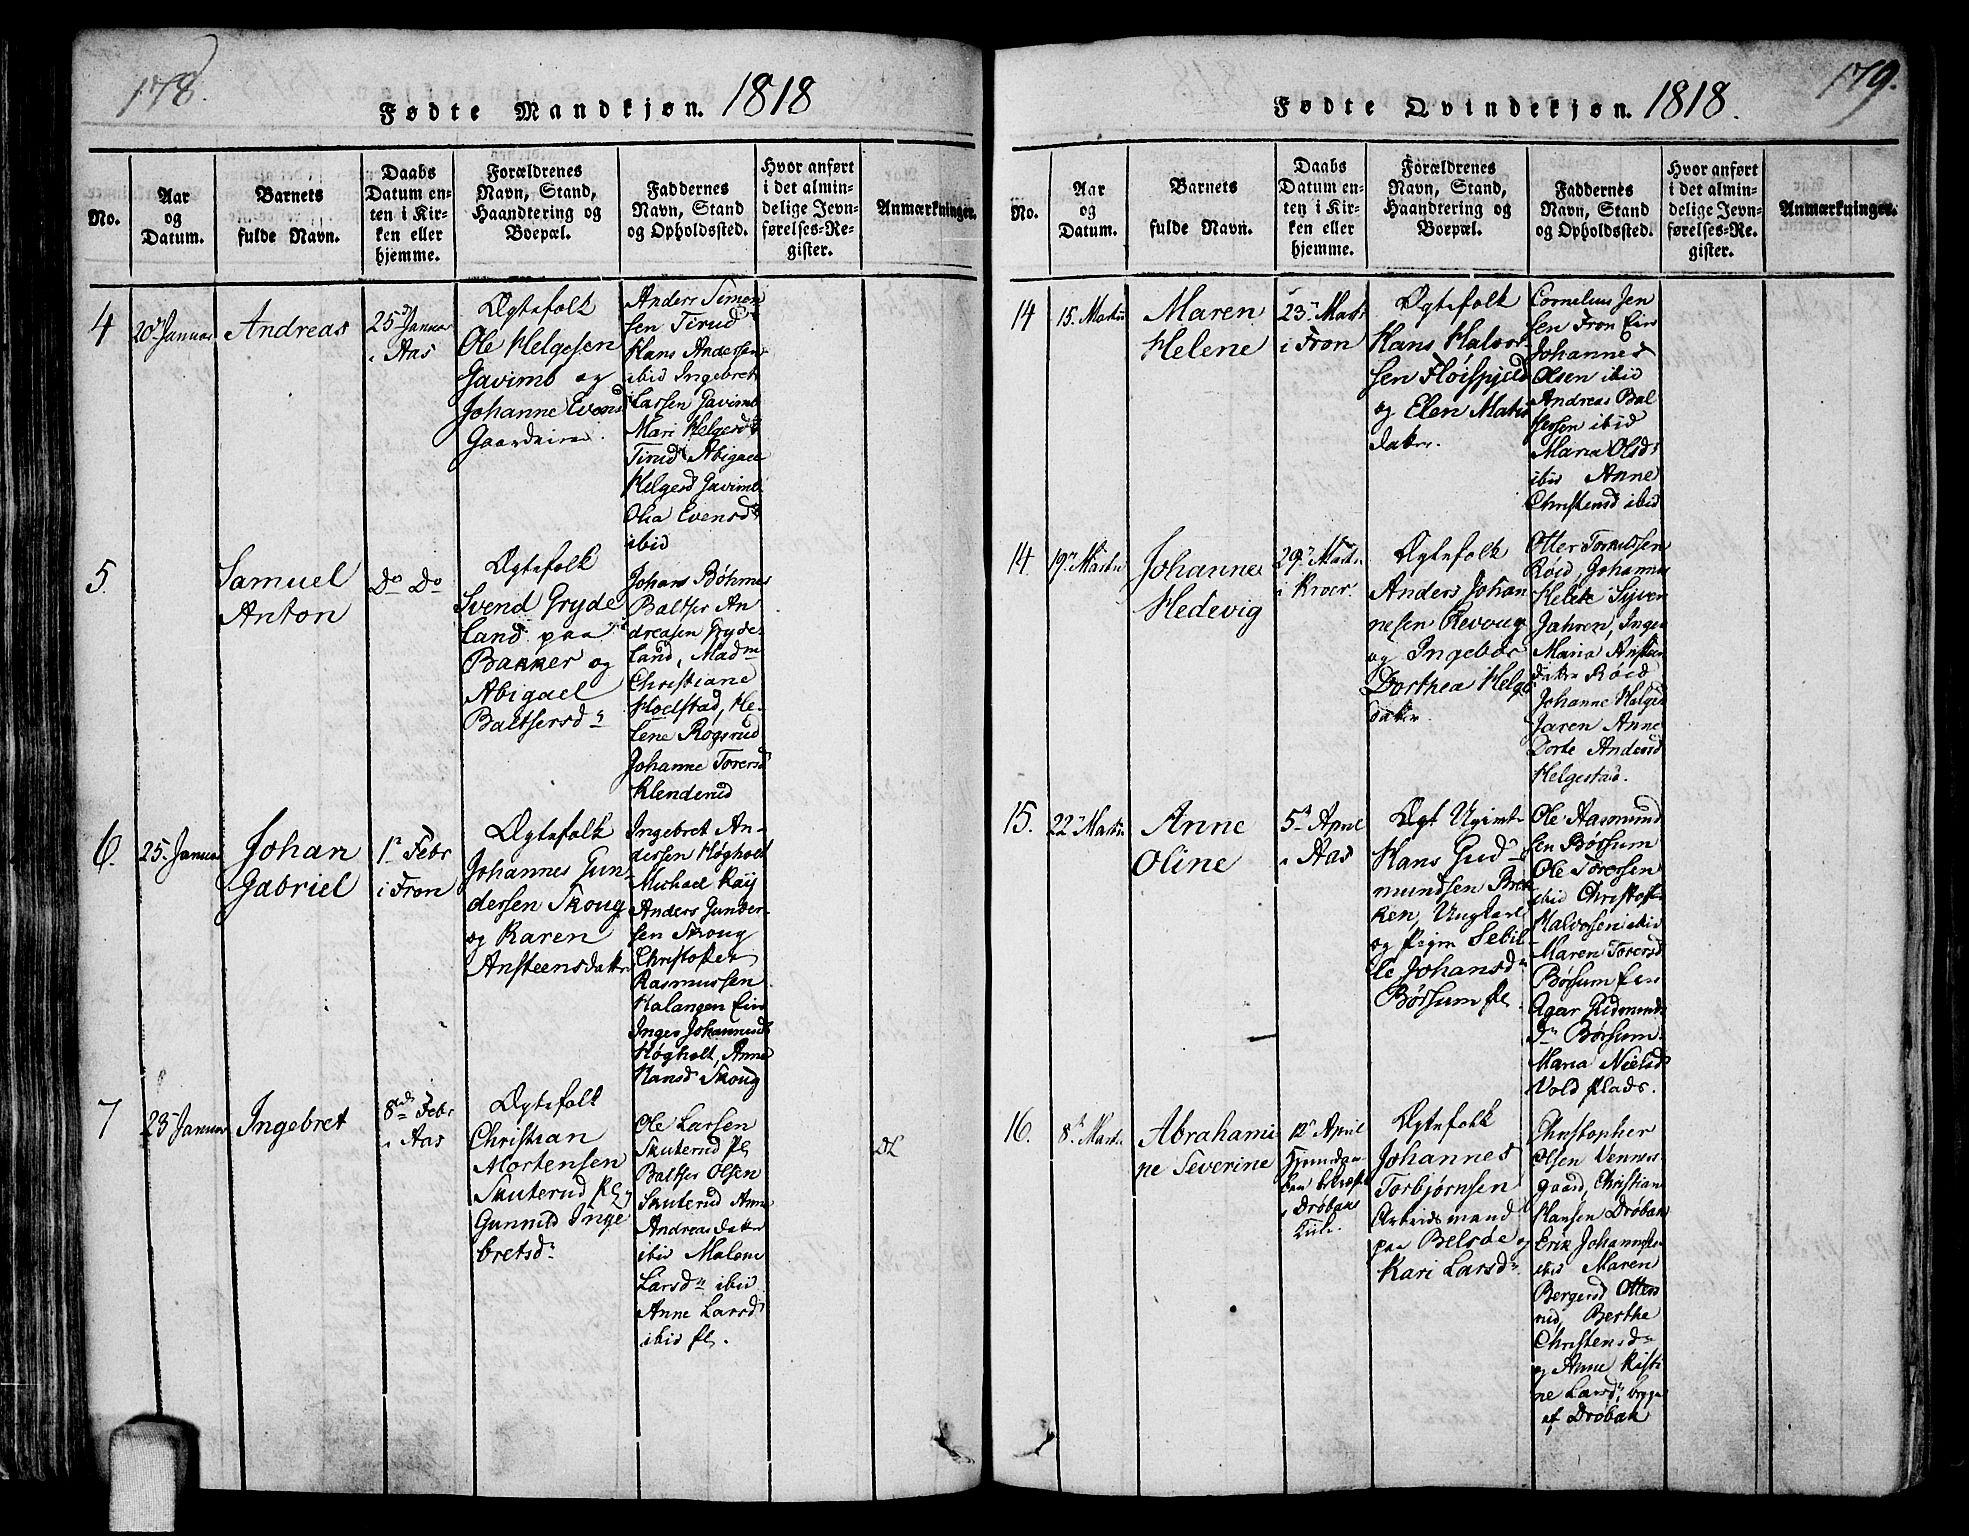 178.
Fødte Mandkjøn. 1818
No.
Aar
og
Datum.
Barnets
fulde Navn.
Daabs
Datum en-
ten i Kir-
ken eller
hjemme.
Forældrenes
Navn, Stand,
Haandtering og
Boepæl.
Faddernes
Navn, Stand
og Opholdssted.
Hvor anført
i det almin-
delige Jevn-
førelses-Re-
gister.
Anmærkninger.
4
20de Januar
Andreas
25de Januar
i Aas
Ægtefolk
Ole Helgesen
Gavimb og
Johanne Evensd
Anders Simen
sen Tirud
Hans Andersen
ibid Ingebret
Larsen Gavimb
Mari Helgesd
Tirud Abigael
Helgesd Gavimb
Olia Evensd
ibid
5.
Samuel
Anton
Do Do
Ægtefolk
Svend Gryde
land paa
Bakker og
Abigael
Baltsersdr
Johans Bøhmer
Baltser An
dreasen Gryde-
land, Madm
Christiane
Hodstad, He-
lene Rogsrud
Johanne Torersd
Klenderud
6.
25. Januar
Johan
Gabriel
1r Febr
i Fron
Ægtefolk
Johannes Gun-
dersen Skoug
og Karen
Ansteensdattr
Ingebret An-
dersen Høgholt
Michael Kaij
Anders Gunder-
sen Skoug
Christopher
Rasmussen
Kalangen Eier
Inger Johannesd
Høgholt, Anne
Hansd Skoug
7
23 Januar
Ingebret
8de Febr
i Aas
Ægtefolk
Christian
Mortensen
Skuterud Pl og
Gunnild Inge
bretsdr
Ole Larsen
Skuterud Pl
Baltser Olsen
Skuterud Anne
Andreasdatter
ibid Malene
Larsdr ibid
Anne Larsd
ibid Pl.
179.
Fødte Qvindekjøn. 1818.
No.
Aar
og
Datum.
Barnets
fulde Navn.
Daabs
Datum en-
ten i Kir-
ken eller
hjemme.
Forældrenes
Navn, Stand,
Haandtering og
Boepæl.
Faddernes
Navn, Stand
og Opholdssted.
Hvor anført
i det almin-
delige Jevn-
førelses-Re-
gister.
Anmærkninger.
14
15. Martii
Maren
Helene
23. Marts
i Fron
Ægtefolk
Hans Halvor-
sen Fløispjeld
og Elen Mats
datter.
Cornelius Jen
sen Fron Eier
Johannes
Olsen ibid
Andreas Bal
sersen ibid
Maria Olsdr
ibid Anne
Christensd ibid
14.
19. Martii
Johanne
Hedevig
29. Marts
i Kroer.
Ægtefolk
Anders Johan
nesen Revoug
og Ingebor
Dorthea Helge
datter.
Otter Torkilssen
Røid, Johannes
Jahren, Inger
Maria Ansteen
datter Røid
Johanne Helgesd
Jaren Anne
Dorte Andersd
Helgestad.
15.
22. Martii
Anne
Oline
5te April
i Aas
Ægt Ugivte
Hans Gud-
mundsen Brek
ken, Ungkarl
og Pigen Sebil-
le Johansdr
Børsum Pl.
Ole Aasmund
sen Børsum
Ole Torersen
ibid Christoff
Halvorsen ibid
Maren Torersd
Børsum Eier
Agar Gudmunds
dr Børsum.
Maria Nielsd
Vold Plads.
16.
8. Martii
Abrahami
ne Severine
12. April
Hjemdaa-
ben bekræftet
i Drøbaks
Kirke
Ægtefolk
Johannes
Torbjørnsen
Arbeidsmand
paa Belsøe og
Kari Larsdr
Christopher
Olsen Vennes-
gaard, Christian
Hansen Drøbak
Erik Johannesen
ibid Maren
Bergersd Otters
rud, Berthe
Christensdr
og Anne Kisti
ne Larsdr begge
af Drøbak